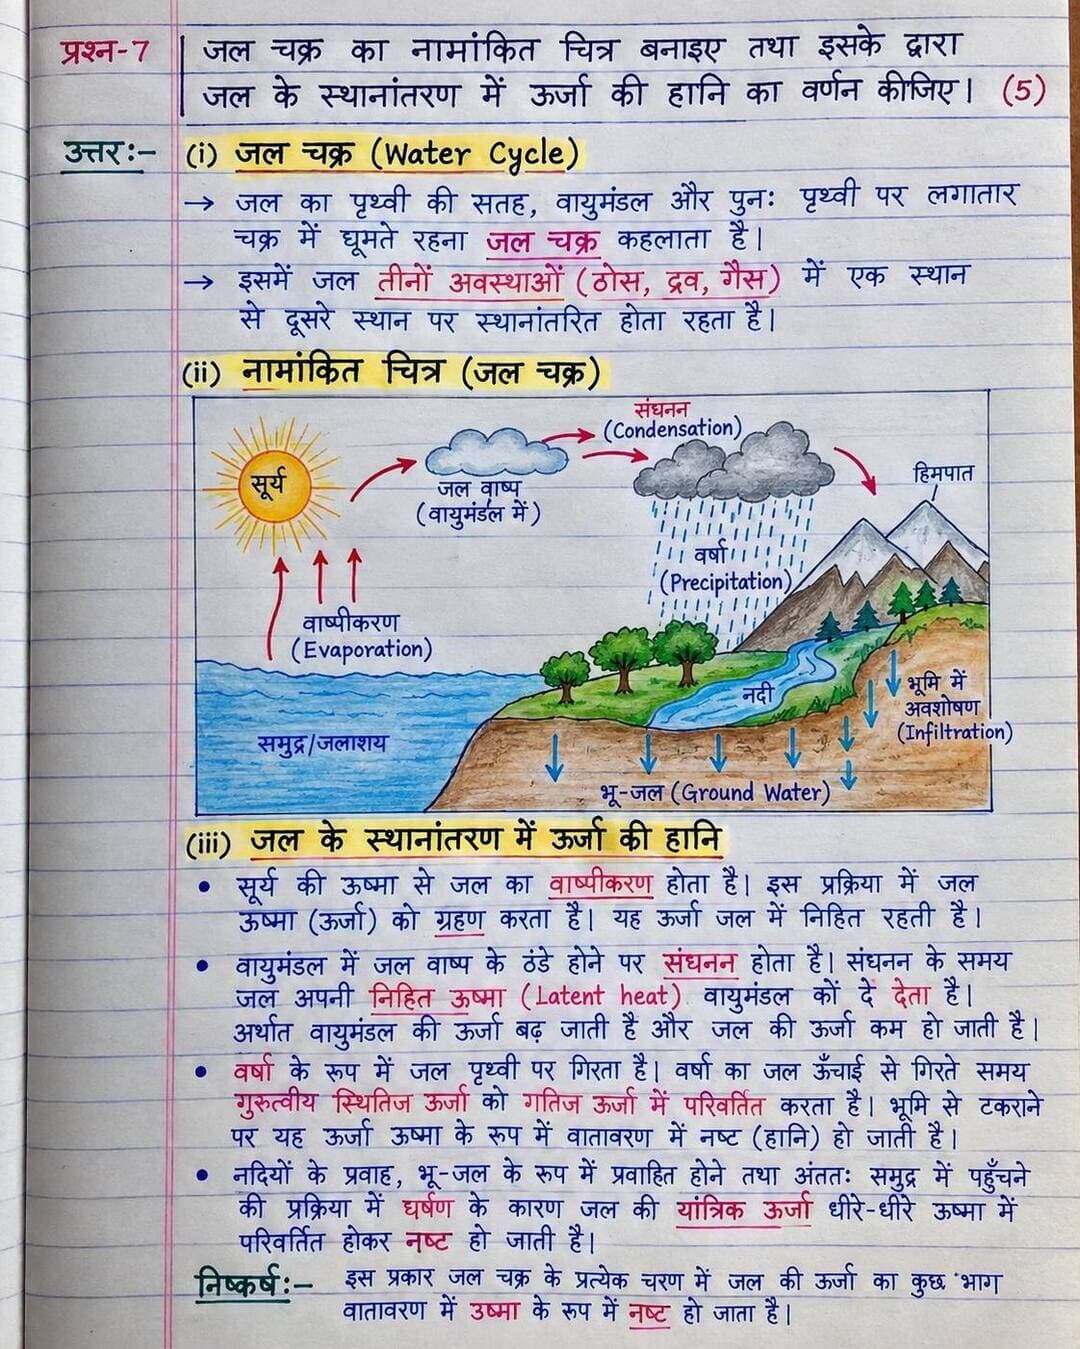 प्रश्न-7 जल चक्र का नामांकित चित्र बनाइए तथा इसके द्वारा
जल के स्थानांतरण में ऊर्जा की हानि का वर्णन कीजिए। (5)
उत्तर:- (i) जल चक्र (Water Cycle)
→ जल का पृथ्वी की सतह, वायुमंडल और पुनः पृथ्वी पर लगातार
चक्र में घूमते रहना जल चक्र कहलाता है।
→ इसमें जल तीनों अवस्थाओं (ठोस, द्रव, गैस) में एक स्थान
से दूसरे स्थान पर स्थानांतरित होता रहता है।
(ii) नामांकित चित्र (जल चक्र)
संघनन
(Condensation)
सूर्य
जल वाष्प
(वायुमंडल में)
हिमपात
वर्षा
(Precipitation)
वाष्पीकरण
(Evaporation)
नदी
भूमि में
अवशोषण
(Infiltration)
समुद्र/जलाशय
भू-जल (Ground Water)
(iii) जल के स्थानांतरण में ऊर्जा की हानि
• सूर्य की ऊष्मा से जल का वाष्पीकरण होता है। इस प्रक्रिया में जल
ऊष्मा (ऊर्जा) को ग्रहण करता है। यह ऊर्जा जल में निहित रहती है।
• वायुमंडल में जल वाष्प के ठंडे होने पर संघनन होता है। संघनन के समय
जल अपनी निहित ऊष्मा (Latent heat) वायुमंडल कों दे देता है।
अर्थात वायुमंडल की ऊर्जा बढ़ जाती है और जल की ऊर्जा कम हो जाती है।
• वर्षा के रूप में जल पृथ्वी पर गिरता है। वर्षा का जल ऊँचाई से गिरते समय
गुरुत्वीय स्थितिज ऊर्जा को गतिज ऊर्जा में परिवर्तित करता है। भूमि से टकराने
पर यह ऊर्जा ऊष्मा के रूप में वातावरण में नष्ट (हानि) हो जाती है।
• नदियों के प्रवाह, भू-जल के रूप में प्रवाहित होने तथा अंततः समुद्र में पहुँचने
की प्रक्रिया में घर्षण के कारण जल की यांत्रिक ऊर्जा धीरे-धीरे ऊष्मा में
परिवर्तित होकर नष्ट हो जाती है।
निष्कर्ष:- इस प्रकार जल चक्र के प्रत्येक चरण में जल की ऊर्जा का कुछ भाग
वातावरण में उष्मा के रूप में नष्ट हो जाता है।